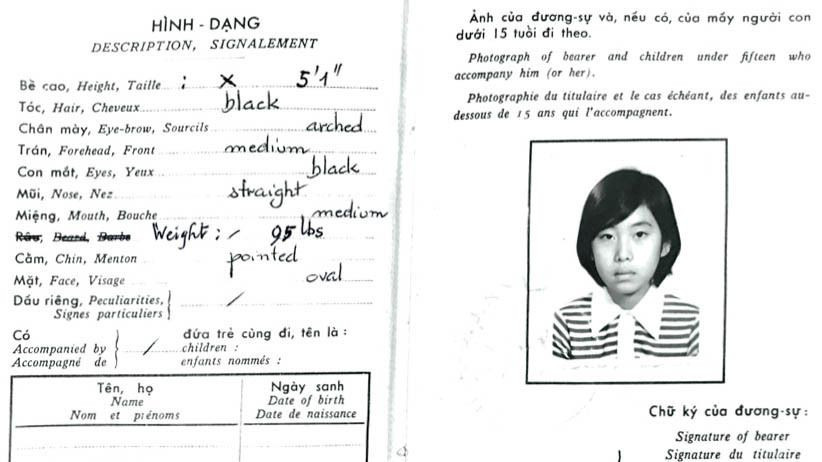 HÌNH - DẠNG
DESCRIPTION, SIGNALEMENT
Bề cao, Height, Taille : X 5'1"
Tóc, Hair, Cheveux black
Chân mày, Eye-brow, Sourcils arched
Trán, Forehead, Front medium
Con mắt, Eyes, Yeux black
Mũi, Nose, Nez straight
Miệng, Mouth, Bouche medium
Râu, Beard, Barbe Weight : / 95 lbs
Cằm, Chin, Menton pointed
Mặt, Face, Visage oval
Dấu riêng, Peculiarities, /
Signes particuliers
Có đứa trẻ cùng đi, tên là :
Accompanied by / children :
Accompagné de enfants nommés :
Tên, họ Ngày sanh
Name Date of birth
Nom et prénoms Date de naissance
Ảnh của đương-sự và, nếu có, của mấy người con
dưới 15 tuổi đi theo.
Photograph of bearer and children under fifteen who
accompany him (or her).
Photographie du titulaire et le cas échéant, des enfants au-
dessous de 15 ans qui l'accompagnent.
Chữ ký của đương-sự :
Signature of bearer
Signature du titulaire